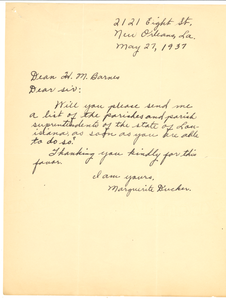 2121 Fight St.
New Orleans, La.
May 27, 1937
Dean H. M. Barnes
Dear sir:
Will you please send me
a list of the parishes and parish
suprentendents of the state of Lou-
isiana, as soon as you are able
to do so."
Thanking you kindly for this
favor.
I am yours,
Marguerite Bucker.